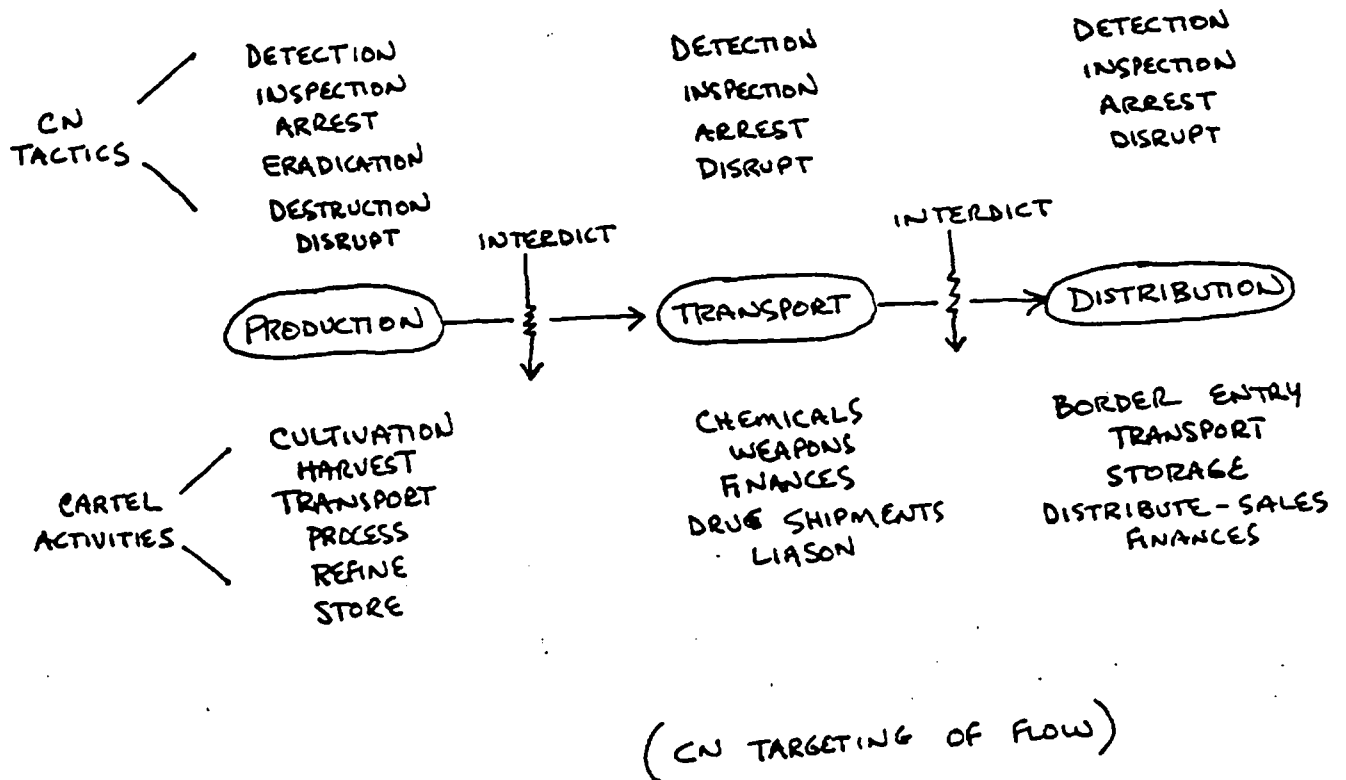 CN
TACTICS
DETECTION
INSPECTION
ARREST
ERADICATION
DESTRUCTION
DISRUPT
DETECTION
INSPECTION
ARREST
DISRUPT
DETECTION
INSPECTION
ARREST
DISRUPT
INTERDICT
INTERDICT
PRODUCTION
TRANSPORT
DISTRIBUTION
CARTEL
ACTIVITIES
CULTIVATION
HARVEST
TRANSPORT
PROCESS
REFINE
STORE
CHEMICALS
WEAPONS
FINANCES
DRUG SHIPMENTS
LIASON
BORDER ENTRY
TRANSPORT
STORAGE
DISTRIBUTE-SALES
FINANCES
(CN TARGETING OF FLOW)